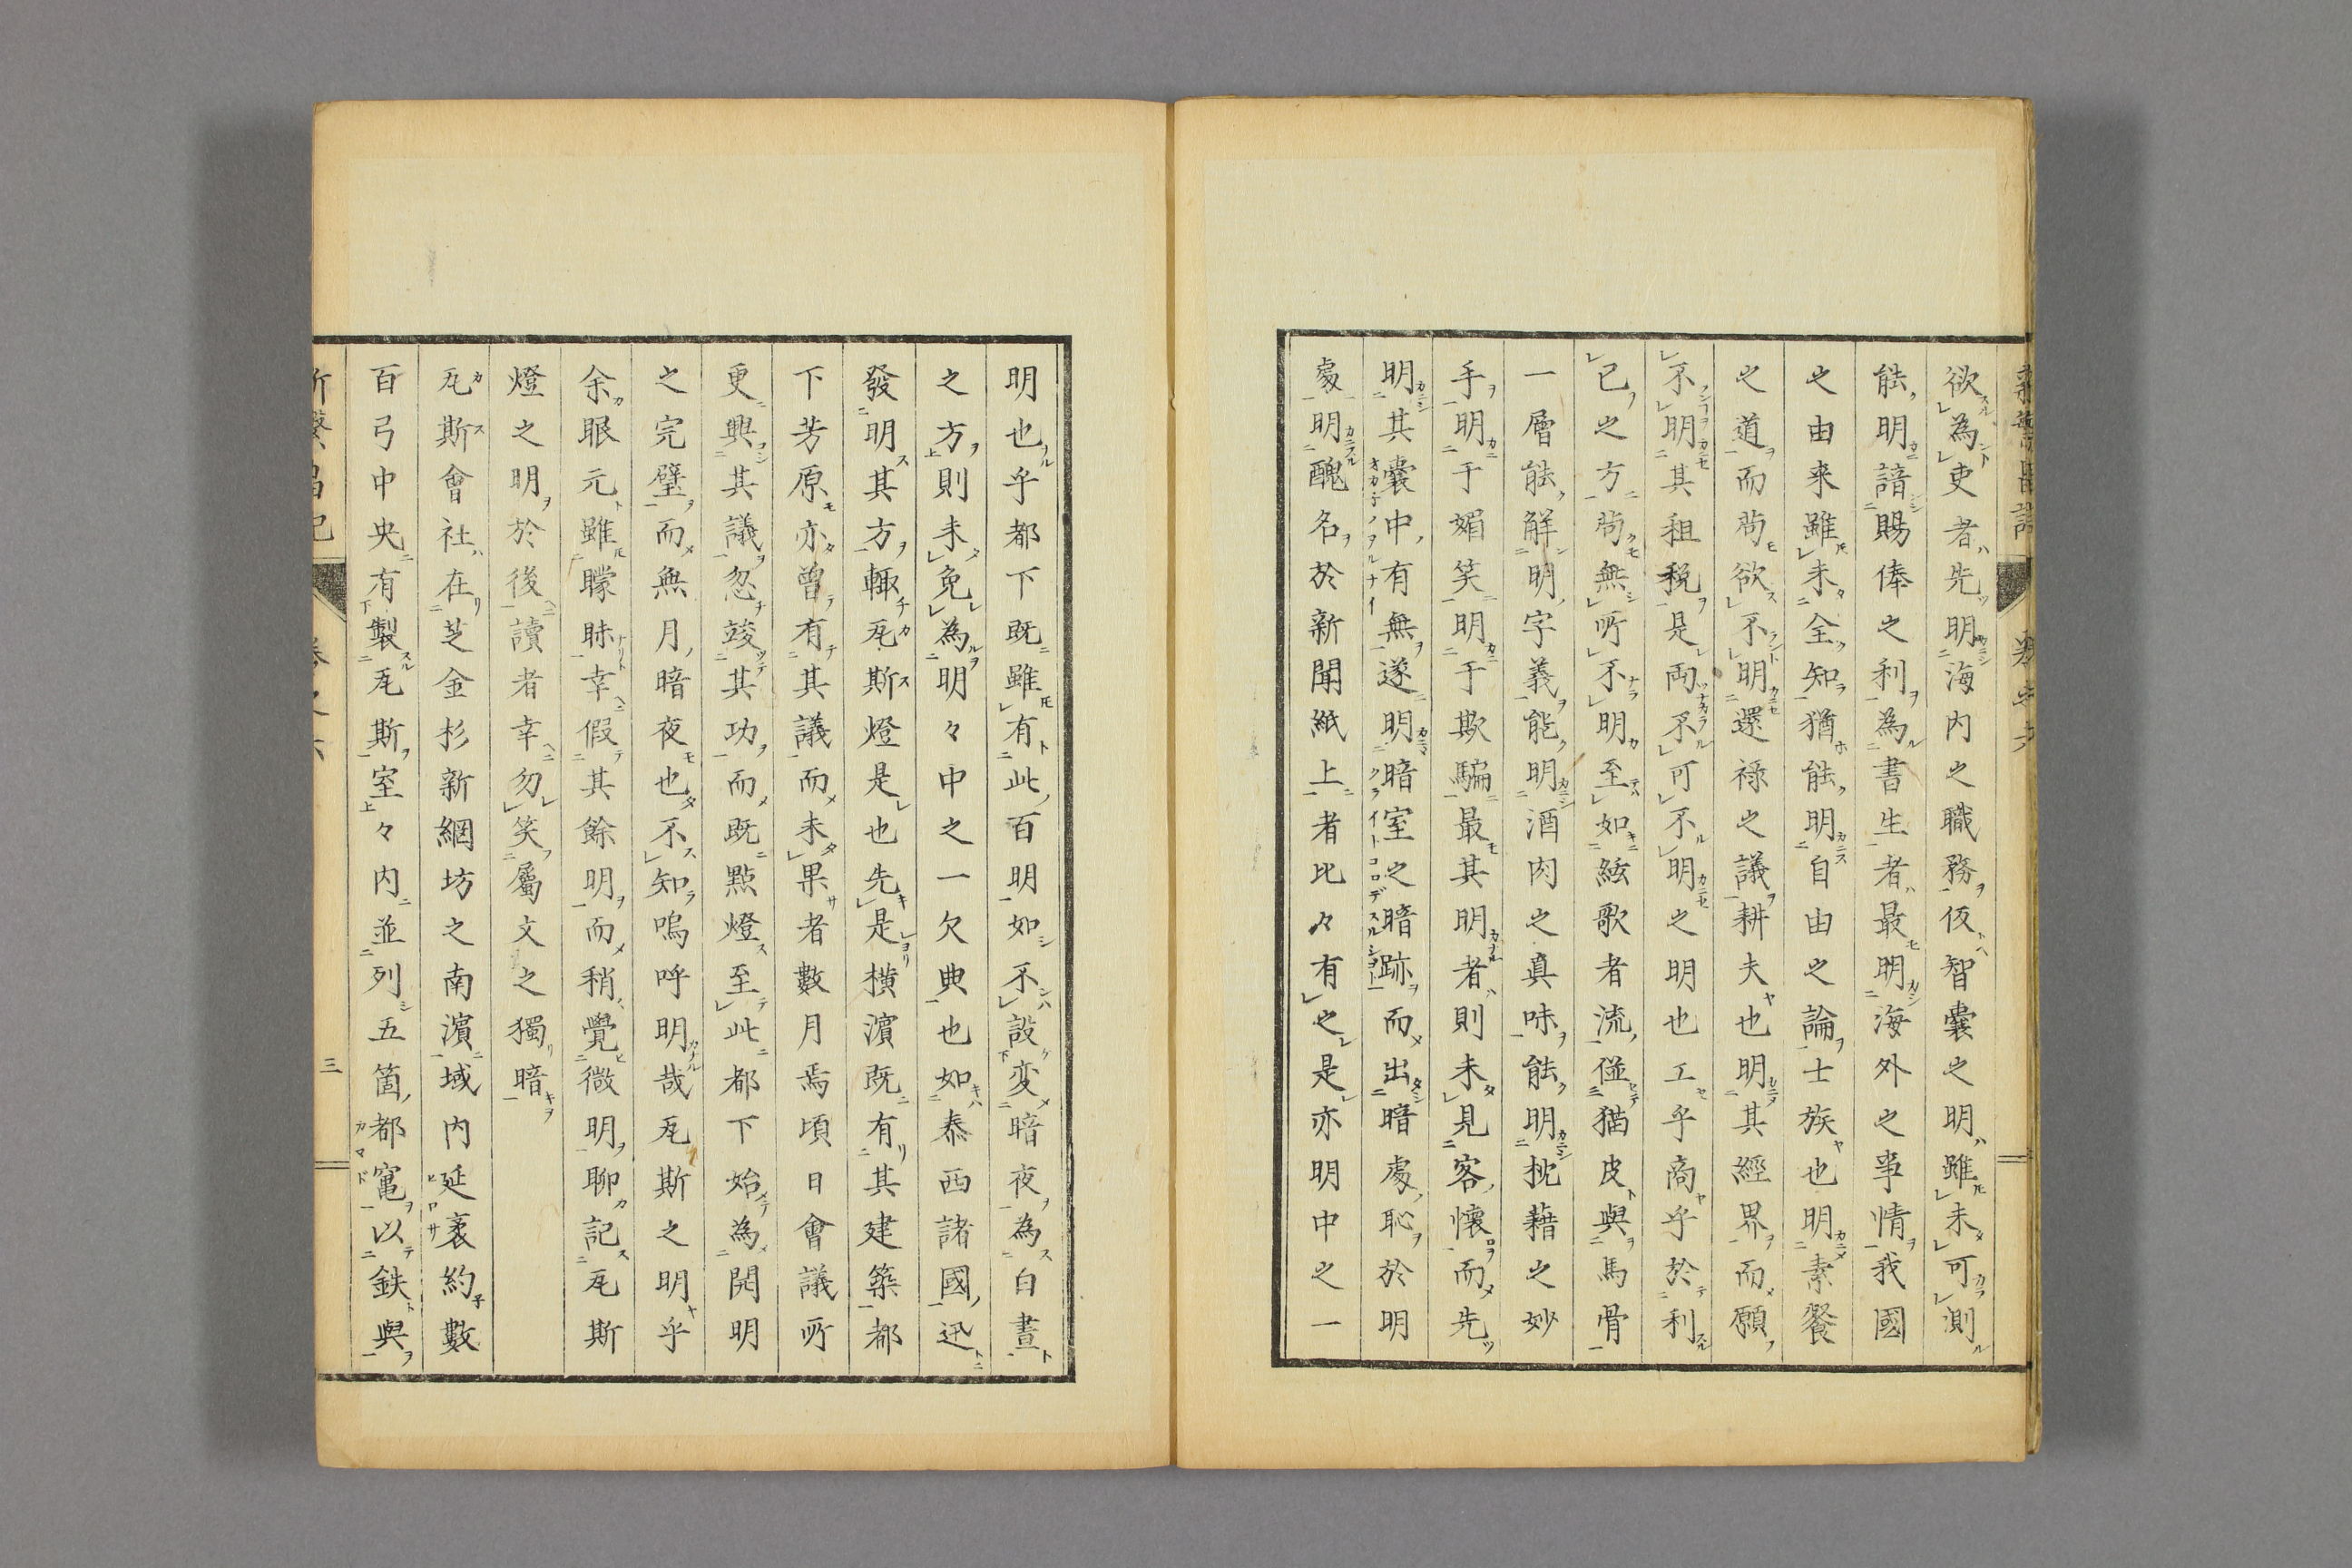 欲為吏者先明海内之職務仮智囊之明雖未可測
能明諳賜俸之利為書生者最明海外之事情我國
之由来雖未全知猶能明自由之論士族也明素餐
之道而尚欲不明還禄之議耕夫也明其經界而願
不明其租税是両不可不明之明也工乎商乎於利
已之方尚無所不明至如絃歌者流儘猫皮與馬骨
一層能解明字義能明酒肉之真味能明枕藉之妙
手明于媚笑明于欺騙最其明者則未見客懐而先
明其囊中有無遂明暗室之暗跡而出暗處恥於明
處明醜名於新聞紙上者比々有之是亦明中之一
明也乎都下既雖有此百明如不設変暗夜為白晝
之方則未免為明々中之一欠典也如泰西諸國迅
發明其方輙瓦斯燈是也先是横濵既有其建築都
下芳原亦曽有其議而未果者數月焉頃日會議所
更興其議忽竣其功而既點燈至此都下始為開明
之完璧而無月暗夜也不知嗚呼明哉瓦斯之明乎
余眼元雖矇眛幸假其餘明而稍覺微明聊記瓦斯
燈之明於後讀者幸勿笑屬文之獨暗
瓦斯會社在芝金杉新網坊之南濵域内延袤約數
百弓中央有製瓦斯室々内並列五箇都竃以鉄與
三